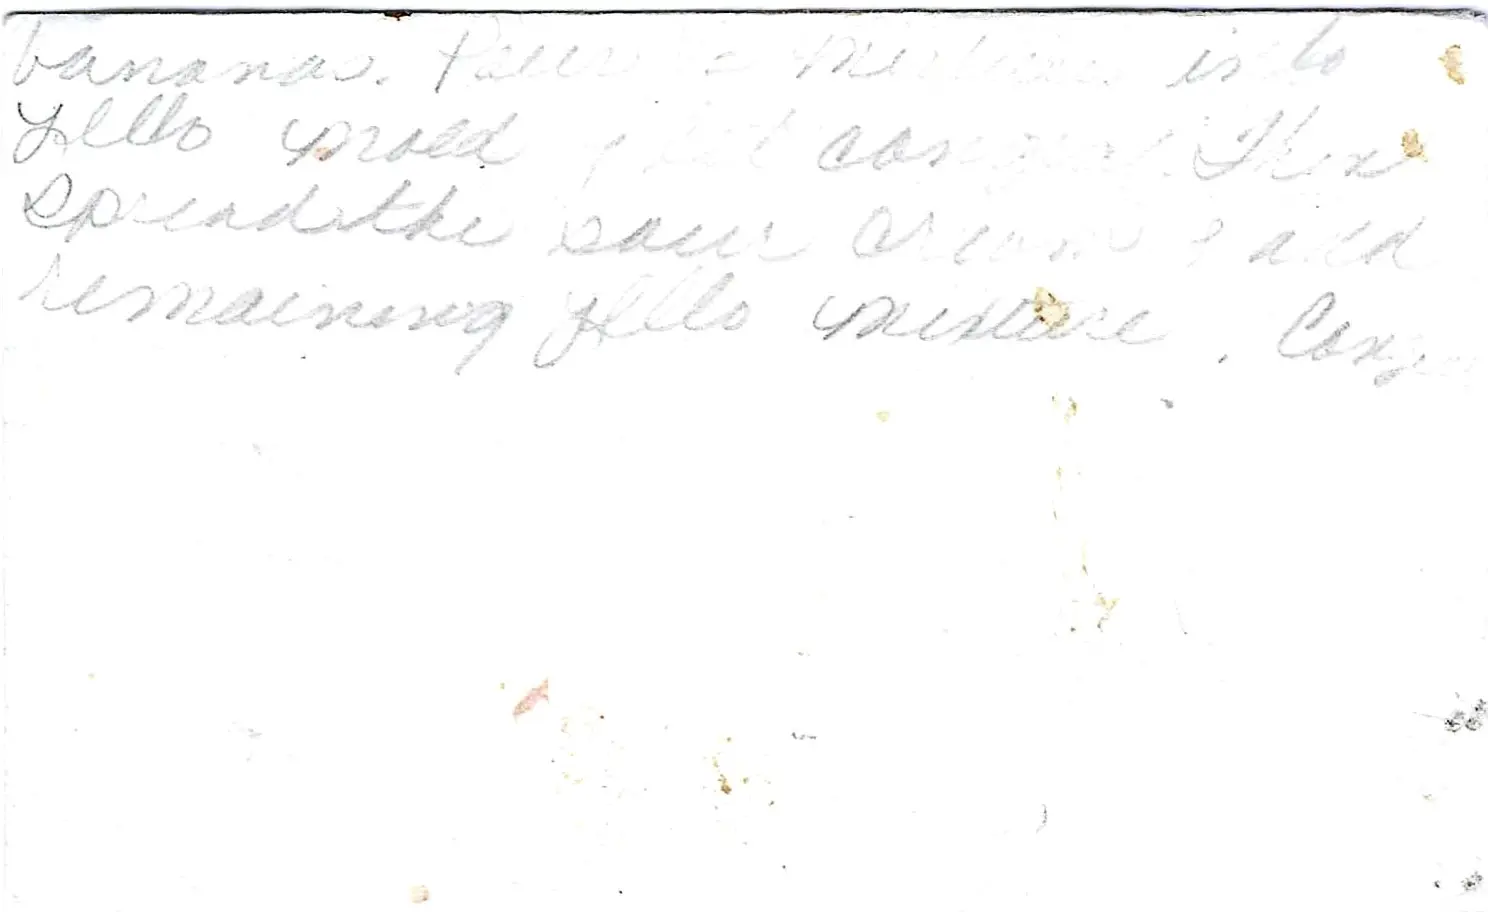 bananas. Pour mixture into
Jello mold & let congeal. Then
spread the sour cream & add
remaining Jello mixture. Congeal